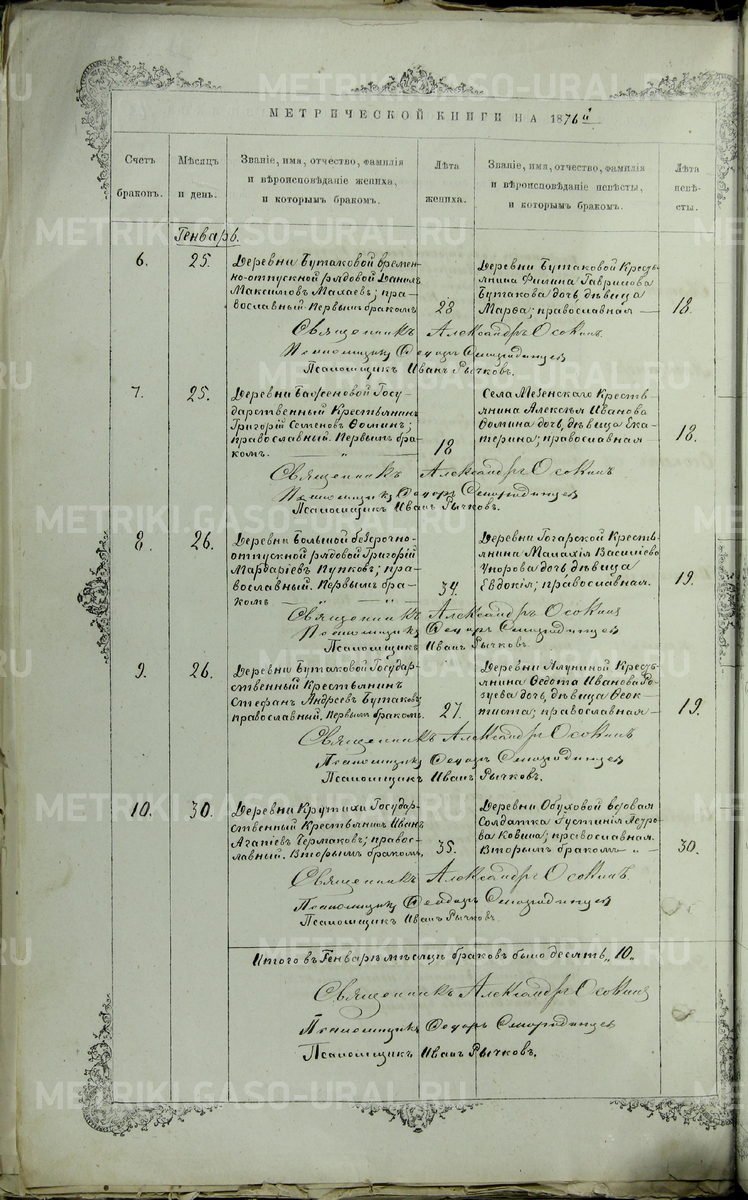 МЕТРИЧЕСКОЙ КНИГИ НА 1876й
Счетъ браковъ.
Мѣсяцъ и день.
Званіе, имя, отчество, фамилія
и вѣроисповѣданіе жениха,
и которымъ бракомъ.
Лѣта жениха.
Званіе, имя, отчество, фамилія
и вѣроисповѣданіе невѣсты,
и которымъ бракомъ.
Лѣта невѣсты.
Генварь.
6.
25.
Деревни Бутаковой времен-
но-отпускной рядовой Даніилъ
Максимовъ Махаевъ; пра-
вославный. Первымъ бракомъ
28
Деревни Бутаковой Кресть-
янина Филипа Гаврилова
Бутакова дочь, дѣвица
Марѳа; православная —
18.
Священникъ Александръ Осокинъ
Псаломщикъ Ѳедоръ
Псаломщикъ Иванъ Рычковъ.
7.
25.
Деревни Баженовой Госу-
дарственный Крестьянинъ
Григорій Семеновъ Ѳоминъ;
православный. Первымъ бра-
комъ. — „
18
Села Мезенскаго Кресть-
янина Алексѣя Иванова
Ѳомина дочь, дѣвица Ека-
терина; православная —
18.
Священникъ Александръ Осокинъ
Псаломщикъ Ѳедоръ
Псаломщикъ Иванъ Рычковъ.
8.
26.
Деревни Большой безсрочно-
отпускной рядовой Григорій
Мардаріевъ Пупковъ; пра-
вославный. Первымъ бра-
комъ — „ — „ —
34.
Деревни Гагарской Кресть-
янина Малахія Василіева
Упорова дочь, дѣвица
Евдокія; православная.
19.
Священникъ Александръ Осокинъ
Псаломщикъ Ѳедоръ
Псаломщикъ Иванъ Рычковъ.
9.
26.
Деревни Бутаковой Государ-
ственный Крестьянинъ
Стефанъ Андреевъ Бутаковъ
православный. Первымъ бракомъ.
27.
Деревни Алуниной Кресть-
янина Ѳедота Иванова
дочь, дѣвица Ѳеок-
тиста; православная —
19.
Священникъ Александръ Осокинъ
Псаломщикъ Ѳедоръ
Псаломщикъ Иванъ Рычковъ.
10.
30.
Деревни Крутихи Государ-
ственный Крестьянинъ Иванъ
Агапіевъ Ермаковъ; правос-
лавный. Вторымъ бракомъ,
35.
Деревни Обуховой вдовая
Солдатка Іустинія Петро-
ва Ковина; православная
Вторымъ бракомъ — „ —
30.
Священникъ Александръ Осокинъ
Псаломщикъ Ѳедоръ
Псаломщикъ Иванъ Рычковъ
Итого въ Генварѣ мѣсяцѣ браковъ было десять „ 10 „
Священникъ Александръ Осокинъ
Псаломщикъ Ѳедоръ
Псаломщикъ Иванъ Рычковъ.
METRIKI.GASO-URAL.RU